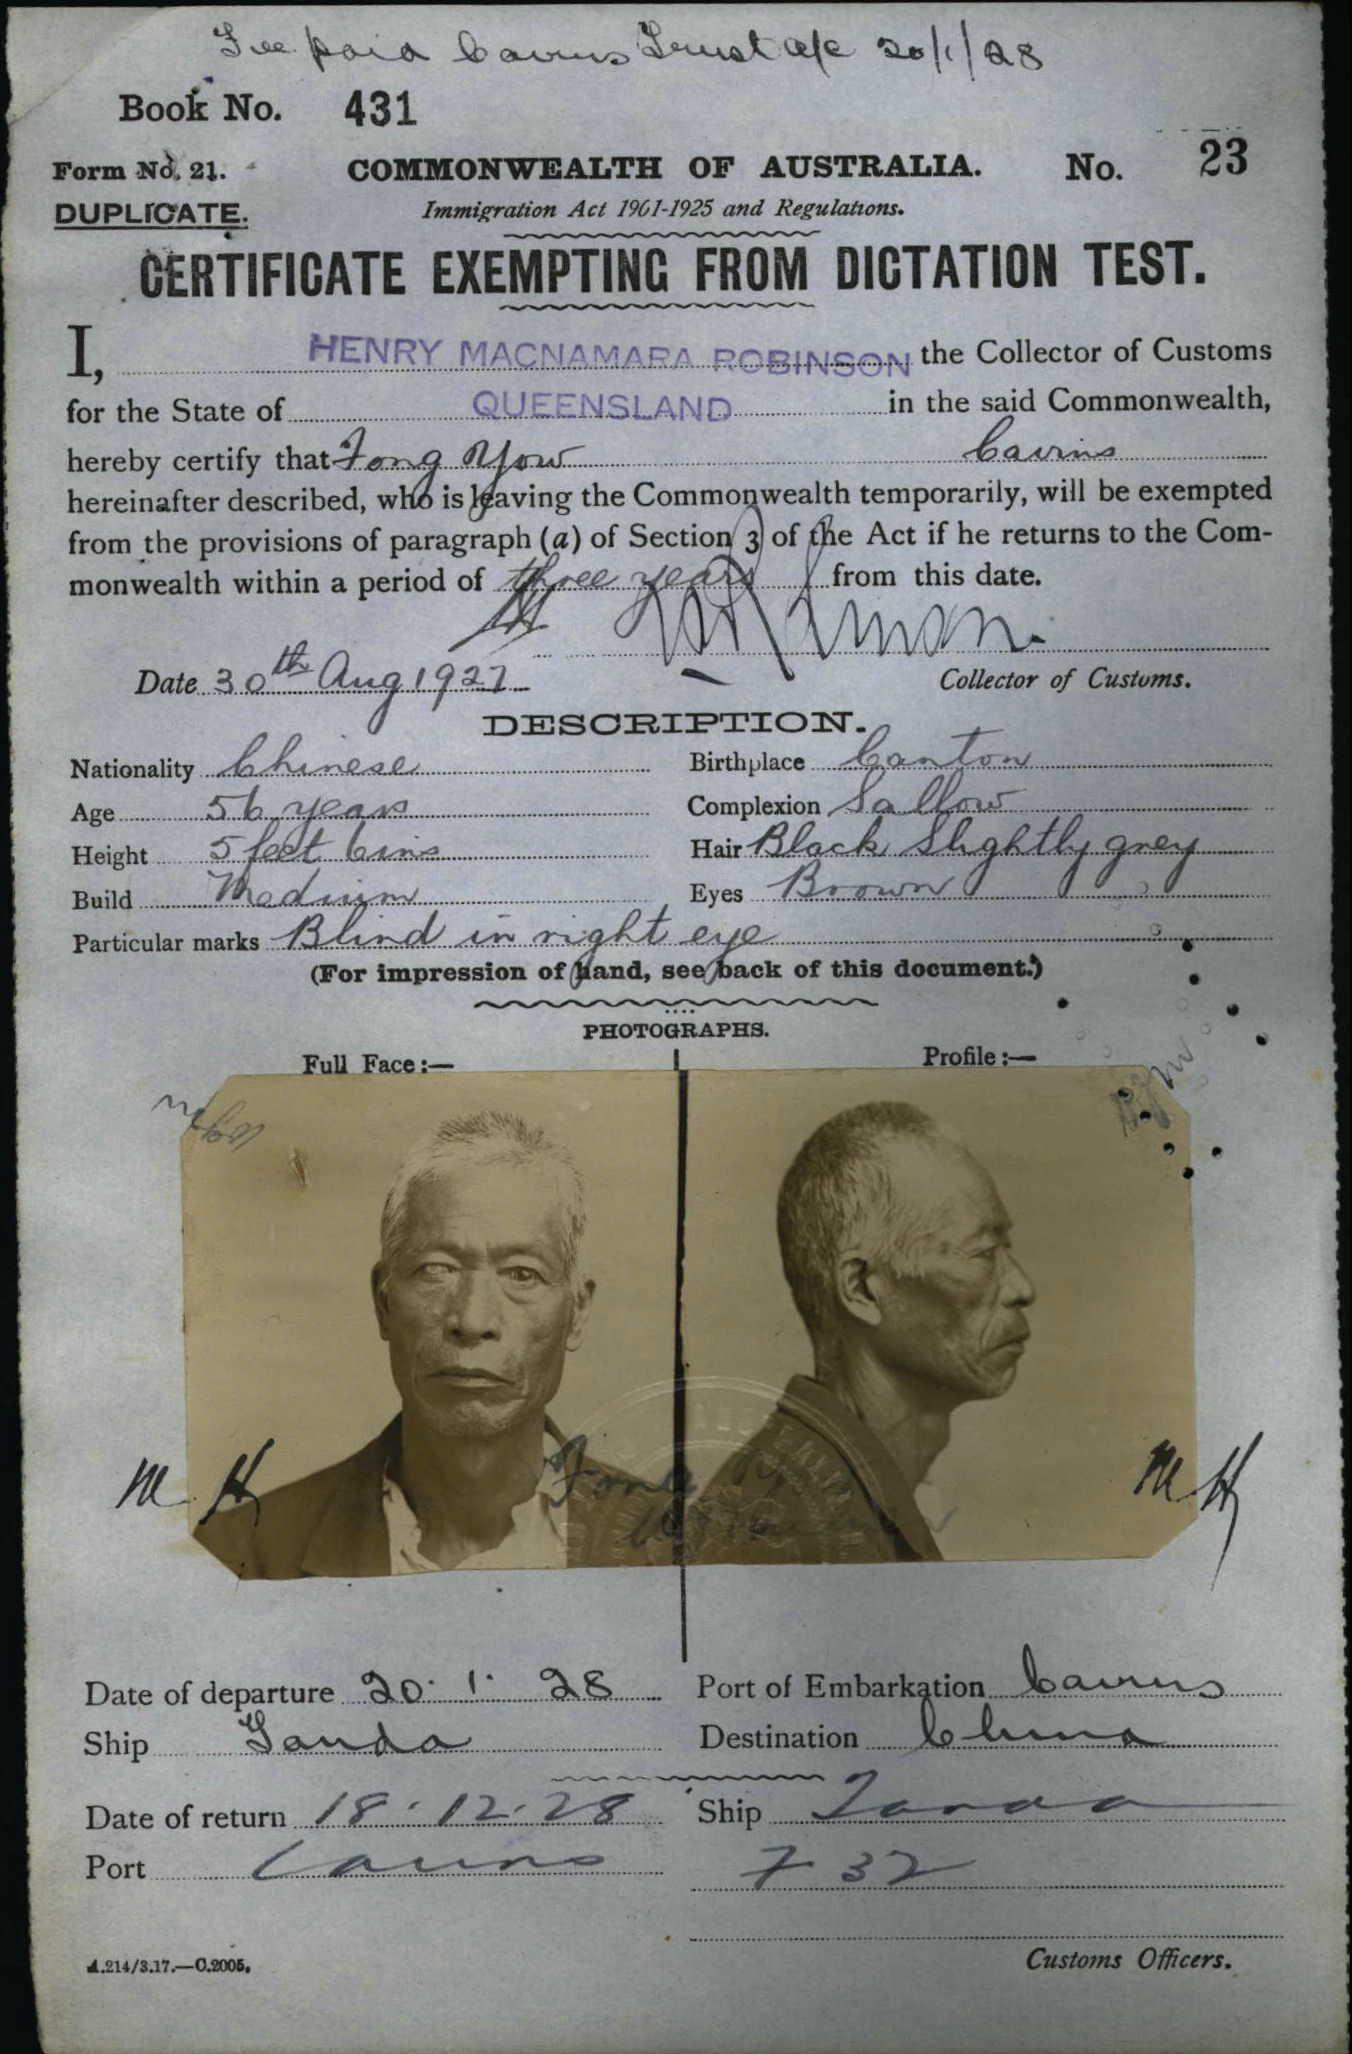 Fee paid Cairns Trust a/c 20/1/28
Book No. 431
Form No. 21. COMMONWEALTH OF AUSTRALIA. No. 23
DUPLICATE. Immigration Act 1901-1925 and Regulations.
CERTIFICATE EXEMPTING FROM DICTATION TEST.
I, HENRY MACNAMARA ROBINSON the Collector of Customs
for the State of QUEENSLAND in the said Commonwealth,
hereby certify that Fong Yow Cairns
hereinafter described, who is leaving the Commonwealth temporarily, will be exempted
from the provisions of paragraph (a) of Section 3 of the Act if he returns to the Com-
monwealth within a period of three years from this date.
Date 30th Aug 1927 Collector of Customs.
DESCRIPTION.
Nationality Chinese Birthplace Canton
Age 56 years Complexion Sallow
Height 5 feet 6 ins Hair Black Slightly grey
Build Medium Eyes Brown
Particular marks Blind in right eye
(For impression of hand, see back of this document.)
PHOTOGRAPHS.
Full Face:— Profile:—
M H M H
Fong
Date of departure 20. 1. 28 Port of Embarkation Cairns
Ship Tanda Destination China
Date of return 18.12.28 Ship Tanda
Port Cairns 7 32
A.214/3.17.—C.2005. Customs Officers.